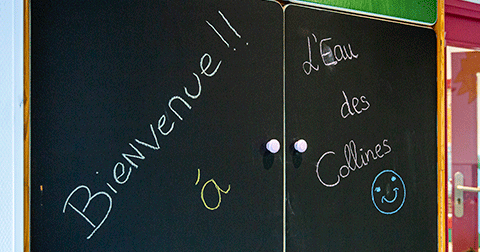 Bienvenue!!
à
L'Eau
des
Collines